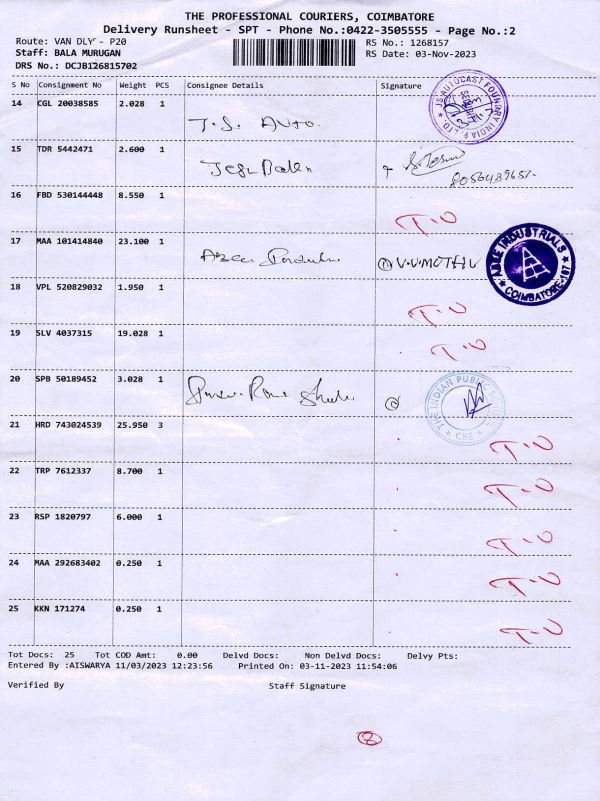 THE PROFESSIONAL COURIERS, COIMBATORE
Delivery Runsheet - SPT - Phone No.:0422-3505555 - Page No.:2
Route: VAN DLY - P20
RS No.: 1268157
Staff: BALA MURUGAN
RS Date: 03-Nov-2023
DRS No.: DCJB126815702
S No Consignment No Weight PCS Consignee Details Signature
14 CGL 20038585 2.028 1
J.S. AUTO.
JS AUTOCAST FOUNDRY INDIA P. LTD.
15 TDR 5442471 2.600 1
8056439657.
16 FBD 530144448 8.550 1
T.O
17 MAA 101414840 23.100 1
V.V.MOTHIV
ABLE INDUSTRIALS
COIMBATORE-107
18 VPL 520829032 1.950 1
T.O
19 SLV 4037315 19.028 1
T.O
20 SPB 50189452 3.028 1
THE INDIAN PUBLIC SCHOOL
CBSE
21 HRD 743024539 25.950 3
T.O
22 TRP 7612337 8.700 1
T.O
23 RSP 1820797 6.000 1
T.O
24 MAA 292683402 0.250 1
T.O
25 KKN 171274 0.250 1
T.O
Tot Docs: 25 Tot COD Amt: 0.00 Delvd Docs: Non Delvd Docs: Delvy Pts:
Entered By :AISWARYA 11/03/2023 12:23:56 Printed On: 03-11-2023 11:54:06
Verified By Staff Signature
8